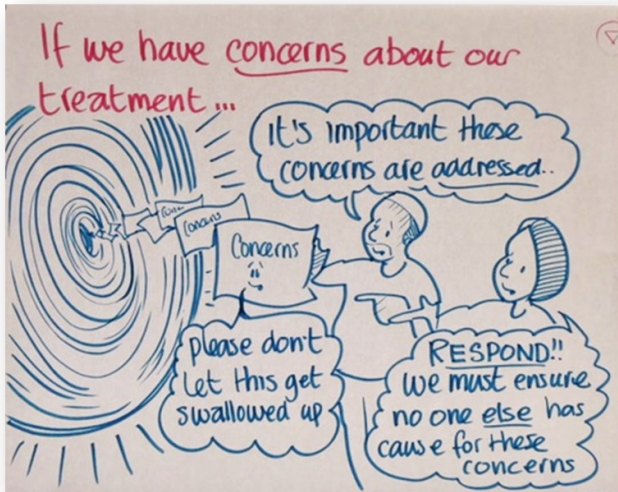 If we have concerns about our
treatment...
It's important these
concerns are addressed..
Concerns
Concerns
please don't
let this get
swallowed up
RESPOND!!
we must ensure
no one else has
cause for these
concerns